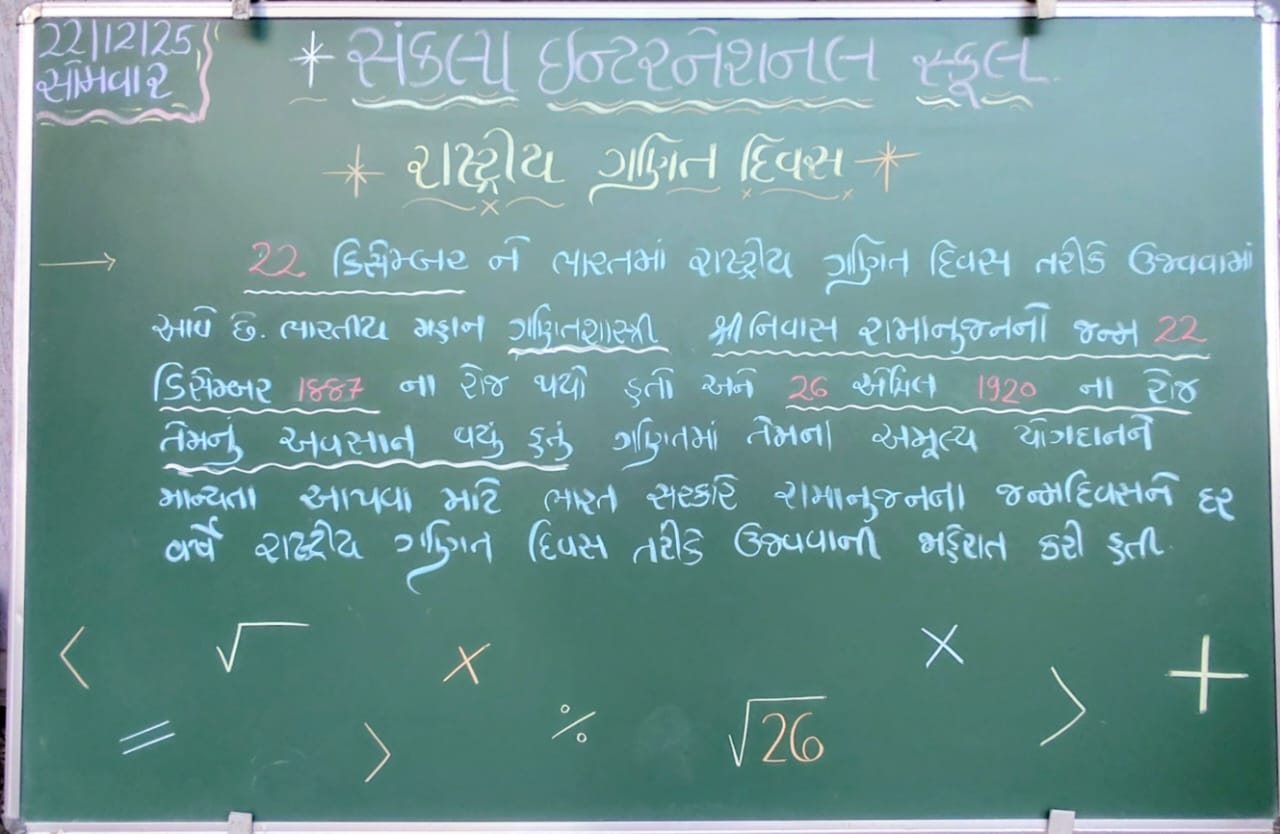 22/12/25
સોમવાર
* સંકલ્પ ઇન્ટરનેશનલ સ્કૂલ
* રાષ્ટ્રીય ગણિત દિવસ *
→ 22 ડિસેમ્બર ને ભારતમાં રાષ્ટ્રીય ગણિત દિવસ તરીકે ઉજવવામાં
આવે છે. ભારતીય મહાન ગણિતશાસ્ત્રી શ્રીનિવાસ રામાનુજનનો જન્મ 22
ડિસેમ્બર 1887 ના રોજ થયો હતો અને 26 એપ્રિલ 1920 ના રોજ
તેમનું અવસાન થયું હતું ગણિતમાં તેમના અમૂલ્ય યોગદાનને
માન્યતા આપવા માટે ભારત સરકારે રામાનુજનના જન્મદિવસને દર
વર્ષે રાષ્ટ્રીય ગણિત દિવસ તરીકે ઉજવવાની જાહેરાત કરી હતી.
< √ × × +
= > % √26 >